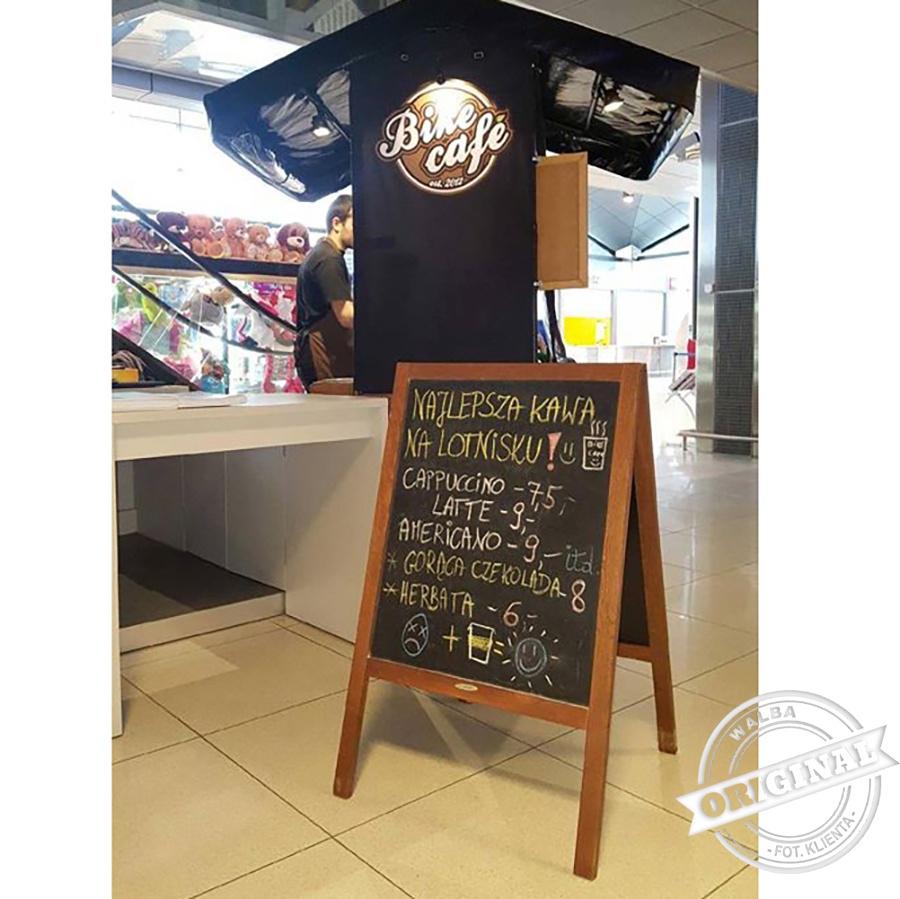 Bike
café
est. 2012
NAJLEPSZA KAWA
NA LOTNISKU!
BIKE
CAFE
CAPPUCCINO - 7,5,-
LATTE - 9,-
AMERICANO - 9,- itd.
* GORĄCA CZEKOLADA - 8
* HERBATA - 6,-
+ =
WALBA
ORIGINAL
- FOT. KLIENTA -